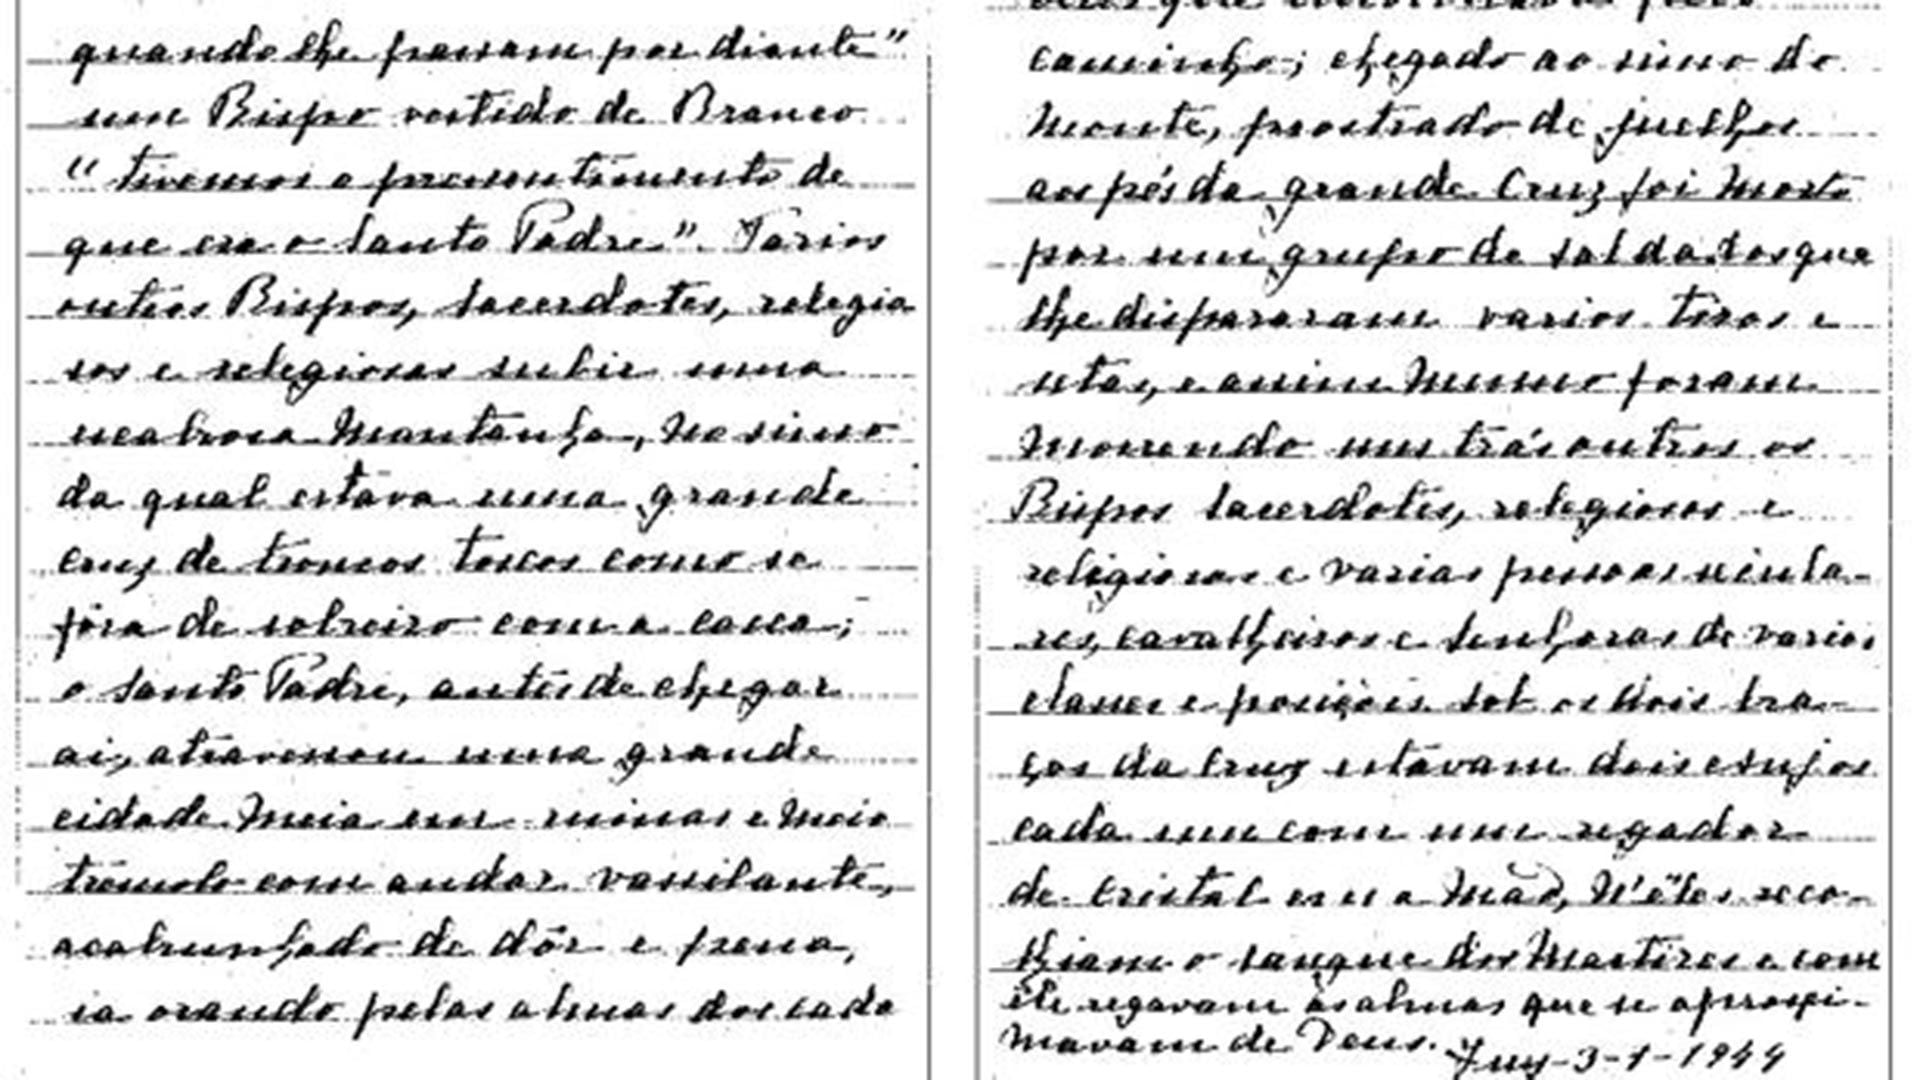 quando lhe passam por diante"
um Bispo vestido de Branco
"tivemos o pressentimento de
que era o Santo Padre". Varios
outros Bispos, sacerdotes, relegio
sos e relegiosas subir uma
escabrosa montanha, no simo
da qual estava uma grande
cruz de troncos toscos como se
fôra de sobreiro com a casca;
o Santo Padre, antes de chegar
aí, atravessou uma grande
cidade meia em ruinas e meio
trémulo com andar vassilante,
acabrunhado de dôr e pena,
ia orando pelas almas dos cada
caminho; chegado ao simo do
monte, prostrado de juelhos
aos pés da grande Cruz foi morto
por um grupo de soldados que
lhe dispararam varios tiros e
setas, e assim mesmo foram
morrendo uns trás outros os
Bispos Sacerdotes, relegiosos e
relegiosas e varias pessoas secula-
res, cavalheiros e senhoras de varias
classes e posições. Sob os dois bra-
ços da Cruz estavam dois Anjos
cada um com um regador
de cristal em a mão, n'êles reco-
lhiam o sangue dos Martires e com
êle regavam as almas que se aproxi-
mavam de Deus.
Tuy-3-1-1944